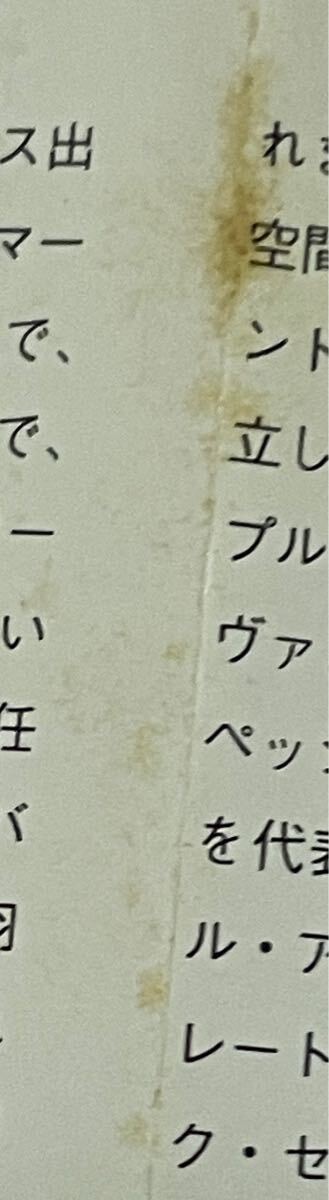 ス出
マー
で、
で、
ー
い
任
バ
れま
空間
ント
立し
プル
ヴァ
ペッ
を代表
ル・ア
レート
ク・セ